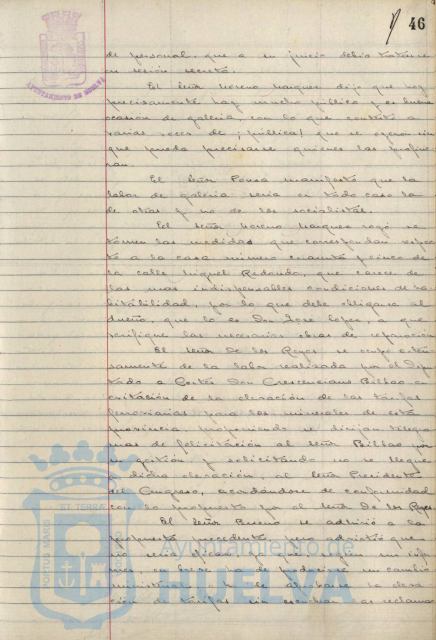 46
AYUNTAMIENTO DE HUELVA
de personal, que a su juicio debia tratarse
en sesión secreta.
El Señor Moreno Marquez dijo que hoy
precisamente hay mucho público y es buena
ocasion de galeria, con lo que contestó a
varias voces de ¡pública! que se oyeron sin
que pueda precisarse quienes las profirie-
ran.
El Señor Ponsá manifestó que la
labor de galeria seria en todo caso la
de otros y no de los socialistas.
El Señor Moreno Marquez rogó se
tomen las medidas que correspondan respec-
to a la casa número cuarenta y cinco de
la calle Miguel Redondo, que carece de
las mas indispensables condiciones de ha-
bitabilidad, por lo que debe obligarse al
dueño, que lo es Don José Lopez, a que
verifique las necesarias obras de reparación
El Señor De los Reyes se ocupó exten-
samente de la labor realizada por el Dipu-
tado a Cortes Don Crescenciano Bilbao en
evitación de la elevación de las tarifas
ferroviarias para los minerales de esta
provincia, proponiendo se dirijan telegra-
mas de felicitación al Señor Bilbao por
su gestión, y solicitando no se llegue
a dicha elevación, al Señor Presidente
del Congreso, acordándose de conformidad
con la propuesta por el Señor de los Reyes
El Señor Bueno se adhirió a la
propuesta precedente, pero
que
en breve ha de producirse un cambio
ministerial, no
la eleva-
ción de tarifas sin escuchar las reclama-
PORTUS MARIS
ET TERRA
Ayuntamiento de
HUELVA